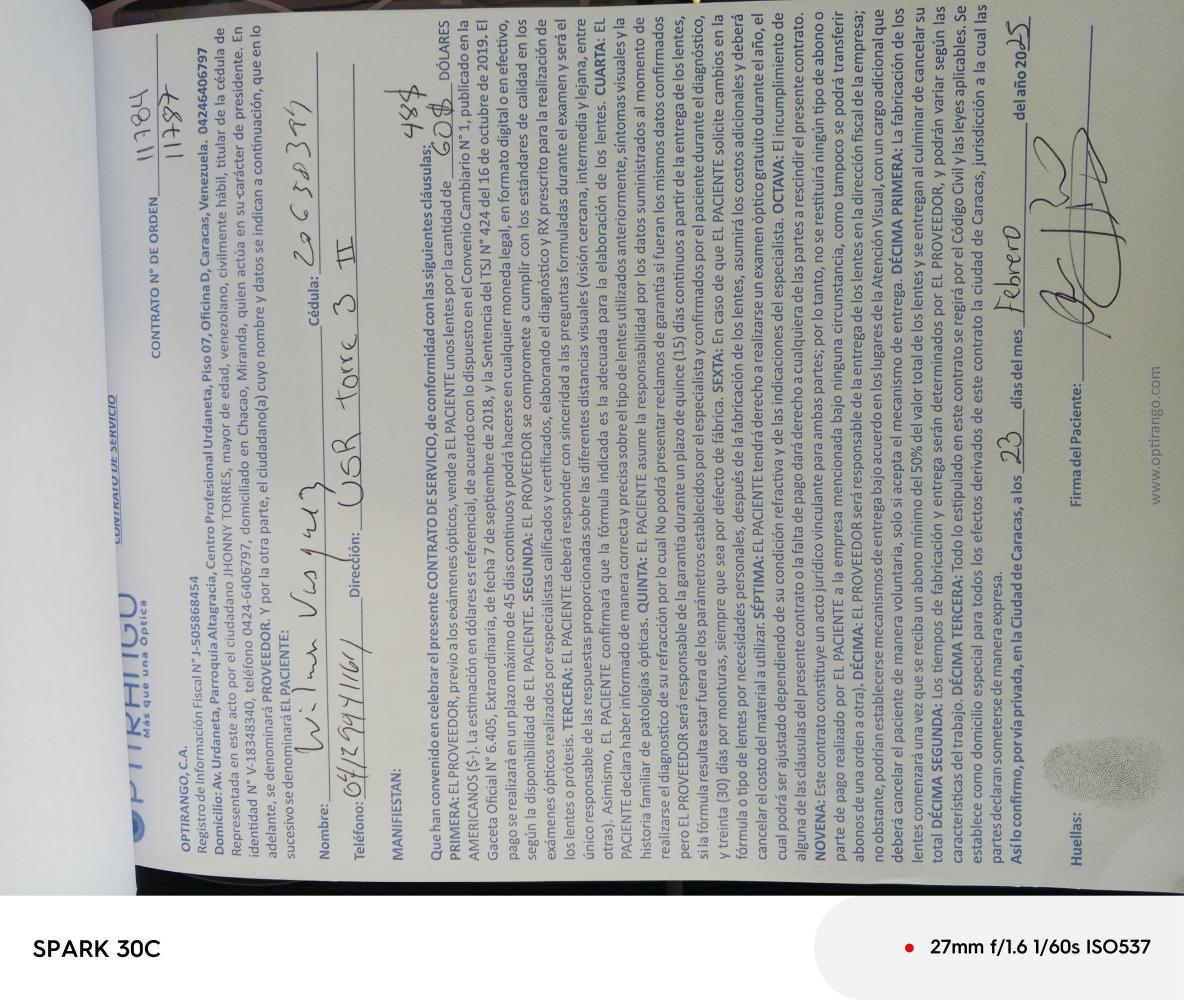 OPTIRANGO
Más que una Óptica
CONTRATO DE SERVICIO
CONTRATO N° DE ORDEN 11784
11787
OPTIRANGO, C.A.
Registro de Información Fiscal N° J-505868454
Domicilio: Av. Urdaneta, Parroquia Altagracia, Centro Profesional Urdaneta, Piso 07, Oficina D, Caracas, Venezuela. 04246406797
Representada en este acto por el ciudadano JHONNY TORRES, mayor de edad, venezolano, civilmente hábil, titular de la cédula de
identidad N° V-18348340, teléfono 0424-6406797, domiciliado en Chacao, Miranda, quien actúa en su carácter de presidente. En
adelante, se denominará PROVEEDOR. Y por la otra parte, el ciudadano(a) cuyo nombre y datos se indican a continuación, que en lo
sucesivo se denominará EL PACIENTE:
Nombre: Wilman Vasquez Cédula: 20630399
Teléfono: 04129941164 Dirección: USR torre 3 II
MANIFIESTAN:
Que han convenido en celebrar el presente CONTRATO DE SERVICIO, de conformidad con las siguientes cláusulas: 48$
PRIMERA: EL PROVEEDOR, previo a los exámenes ópticos, vende a EL PACIENTE unos lentes por la cantidad de 60$ DÓLARES
AMERICANOS ($-). La estimación en dólares es referencial, de acuerdo con lo dispuesto en el Convenio Cambiario N° 1, publicado en la
Gaceta Oficial N° 6.405, Extraordinaria, de fecha 7 de septiembre de 2018, y la Sentencia del TSJ N° 424 del 16 de octubre de 2019. El
pago se realizará en un plazo máximo de 45 días continuos y podrá hacerse en cualquier moneda legal, en formato digital o en efectivo,
según la disponibilidad de EL PACIENTE. SEGUNDA: EL PROVEEDOR se compromete a cumplir con los estándares de calidad en los
exámenes ópticos realizados por especialistas calificados y certificados, elaborando el diagnóstico y RX prescrito para la realización de
los lentes o prótesis. TERCERA: EL PACIENTE deberá responder con sinceridad a las preguntas formuladas durante el examen y será el
único responsable de las respuestas proporcionadas sobre las diferentes distancias visuales (visión cercana, intermedia y lejana, entre
otras). Asimismo, EL PACIENTE confirmará que la fórmula indicada es la adecuada para la elaboración de los lentes. CUARTA: EL
PACIENTE declara haber informado de manera correcta y precisa sobre el tipo de lentes utilizados anteriormente, síntomas visuales y la
historia familiar de patologías ópticas. QUINTA: EL PACIENTE asume la responsabilidad por los datos suministrados al momento de
realizarse el diagnostico de su refracción por lo cual No podrá presentar reclamos de garantía si fueran los mismos datos confirmados
pero EL PROVEEDOR será responsable de la garantía durante un plazo de quince (15) días continuos a partir de la entrega de los lentes,
si la fórmula resulta estar fuera de los parámetros establecidos por el especialista y confirmados por el paciente durante el diagnóstico,
y treinta (30) días por monturas, siempre que sea por defecto de fábrica. SEXTA: En caso de que EL PACIENTE solicite cambios en la
fórmula o tipo de lentes por necesidades personales, después de la fabricación de los lentes, asumirá los costos adicionales y deberá
cancelar el costo del material a utilizar. SÉPTIMA: EL PACIENTE tendrá derecho a realizarse un examen óptico gratuito durante el año, el
cual podrá ser ajustado dependiendo de su condición refractiva y de las indicaciones del especialista. OCTAVA: El incumplimiento de
alguna de las cláusulas del presente contrato o la falta de pago dará derecho a cualquiera de las partes a rescindir el presente contrato.
NOVENA: Este contrato constituye un acto jurídico vinculante para ambas partes; por lo tanto, no se restituirá ningún tipo de abono o
parte de pago realizado por EL PACIENTE a la empresa mencionada bajo ninguna circunstancia, como tampoco se podrá transferir
abonos de una orden a otra). DÉCIMA: El PROVEEDOR será responsable de la entrega de los lentes en la dirección fiscal de la empresa;
no obstante, podrían establecerse mecanismos de entrega bajo acuerdo en los lugares de la Atención Visual, con un cargo adicional que
deberá cancelar el paciente de manera voluntaria, solo si acepta el mecanismo de entrega. DÉCIMA PRIMERA: La fabricación de los
lentes comenzará una vez que se reciba un abono mínimo del 50% del valor total de los lentes y se entregan al culminar de cancelar su
total DÉCIMA SEGUNDA: Los tiempos de fabricación y entrega serán determinados por EL PROVEEDOR, y podrán variar según las
características del trabajo. DÉCIMA TERCERA: Todo lo estipulado en este contrato se regirá por el Código Civil y las leyes aplicables. Se
establece como domicilio especial para todos los efectos derivados de este contrato la ciudad de Caracas, jurisdicción a la cual las
partes declaran someterse de manera expresa.
Así lo confirmo, por vía privada, en la Ciudad de Caracas, a los 23 días del mes Febrero del año 2025
Huellas: Firma del Paciente:
www.optirango.com
SPARK 30C
27mm f/1.6 1/60s ISO537